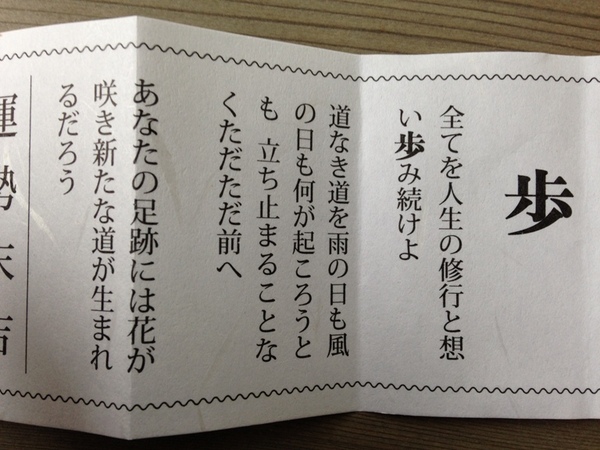 歩
全てを人生の修行と想
い歩み続けよ
道なき道を雨の日も風
の日も何が起ころうと
も 立ち止まることな
くただただ前へ
あなたの足跡には花が
咲き新たな道が生まれ
るだろう
運勢末吉